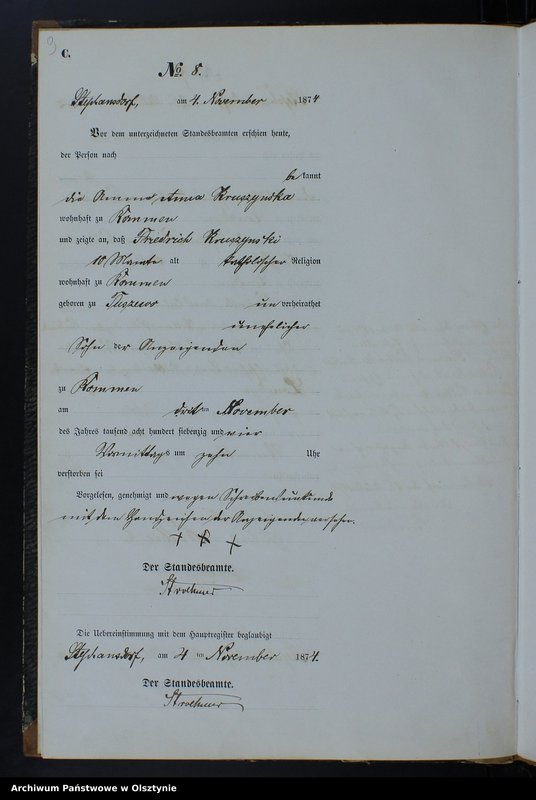 9
C.
No. 8.
Stephansdorf, am 4. November 1874
Vor dem unterzeichneten Standesbeamten erschien heute,
der Person nach
bekannt
die Amme Anna Kruszynska
wohnhaft zu Kommen
und zeigte an, daß Friedrich Kruszynski
10 Monate alt katholischer Religion
wohnhaft zu Kommen
geboren zu Tuszewo unverheirathet
unehelicher
Sohn der Anzeigenden
zu Kommen
am dritten November
des Jahres tausend acht hundert siebenzig und vier
Vormittags um zehn Uhr
verstorben sei
Vorgelesen, genehmigt und wegen Schreibensunkunde
mit dem Handzeichen der Anzeigenden versehen.
+ + +
Der Standesbeamte.
Die Uebereinstimmung mit dem Hauptregister beglaubigt
Stephansdorf, am 4 ten November 1874.
Der Standesbeamte.
Archiwum Państwowe w Olsztynie